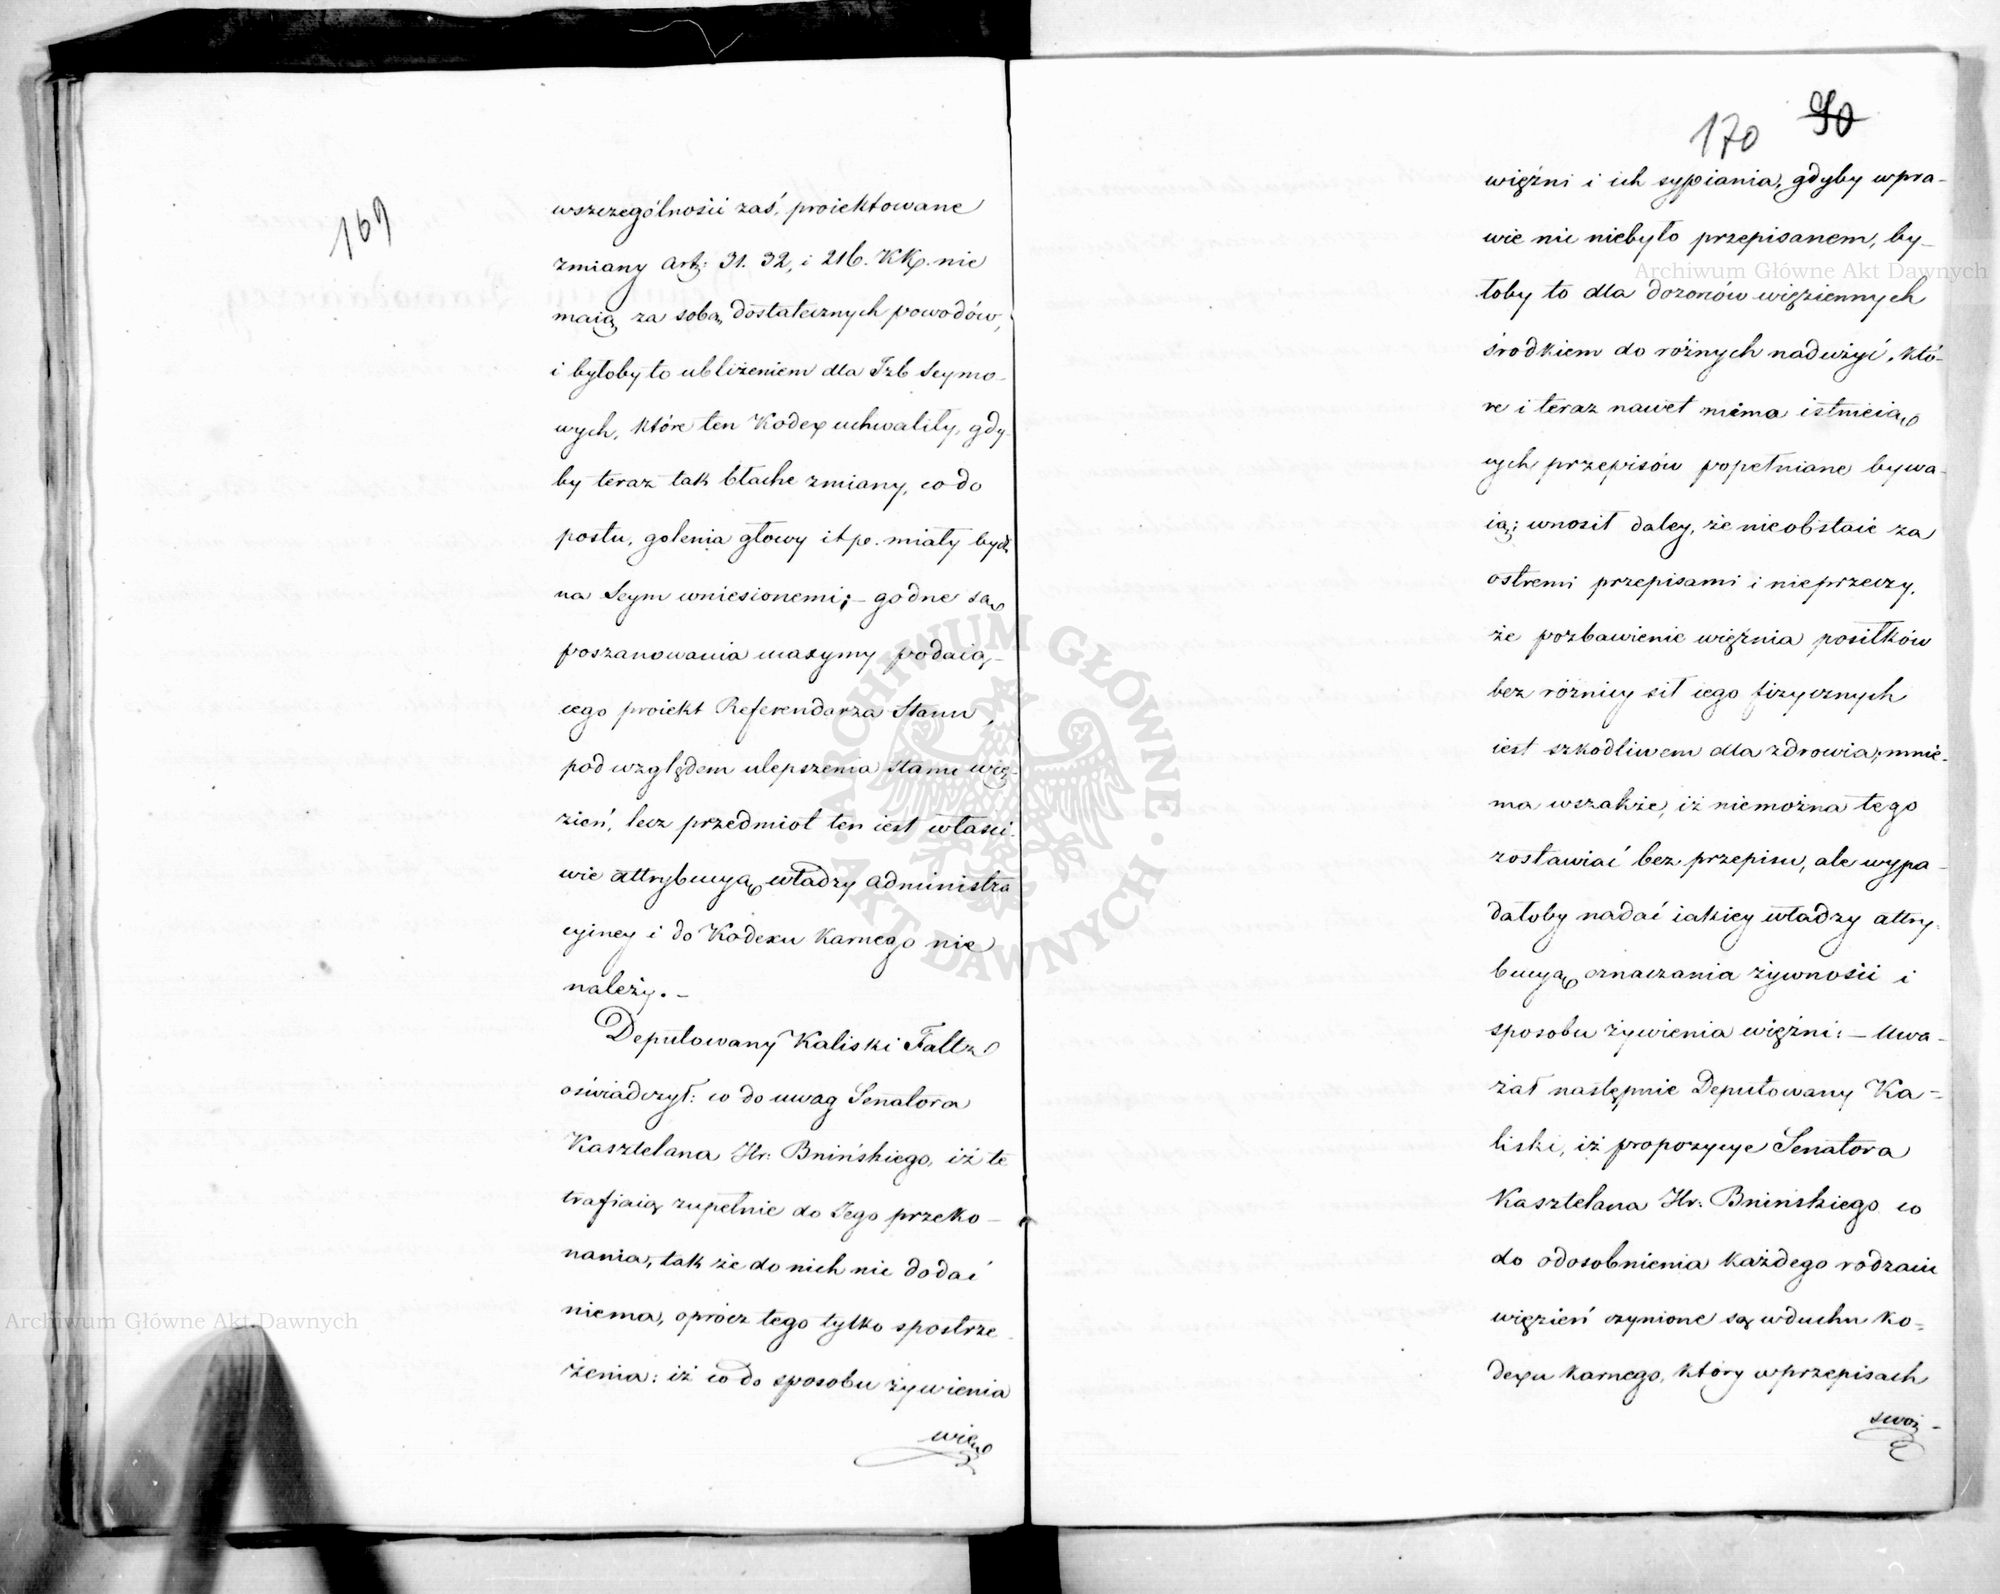 169
wszczególności zaś, proiektowane
zmiany art: 31. 32, i 216. KK. nie
maią za sobą dostatecznych powodów,
i byłoby to ubliżeniem dla Izb Seymo-
wych, które ten Kodex uchwaliły, gdy-
by teraz tak błache zmiany, co do
postu, golenia głowy itp. miały być
na Seym wniesionemi; – godne są
poszanowania maxymy podaią-
cego proiekt Referendarza Stanu,
pod względem ulepszenia stanu wię-
zień, lecz przedmiot ten iest właści-
wie attrybucyą władzy administra
cyiney i do Kodexu Karnego nie
należy. –
Deputowany Kaliski Faltz
oświadczył: co do uwag Senatora
Kasztelana Hr: Bnińskiego, iż te
trafiaią zupełnie do Iego przeko-
nania, tak że do nich nic dodać
niema, oprócz tego tylko spostrze-
żenia: iż co do sposobu żywienia
wię
170 90
więźni i ich sypiania, gdyby wpra-
wie nic niebyło przepisanem, by-
łoby to dla dozorców więziennych
środkiem do różnych nadużyć, któ-
re i teraz nawet mimo istnieią
cych przepisów popełniane bywa-
ią; wnosił daley, że nieobstaie za
ostremi przepisami i nieprzeczy,
że pozbawienie więźnia posiłków
bez różnicy sił iego fizycznych
iest szkodliwem dla zdrowia; mnie-
ma wszakże, iż niemożna tego
zostawiać bez przepisu, ale wypa-
dałoby nadać iakiey władzy attry-
bucyą oznaczania żywności i
sposobu żywienia więźni: – Uwa-
żał następnie Deputowany Ka-
liski, iż propozycye Senatora
Kasztelana Hr: Bnińskiego co
do odosobnienia każdego rodzaiu
więzień czynione są wduchu Ko-
dexu karnego, który wprzepisach
swoi-
Archiwum Główne Akt Dawnych
Archiwum Główne Akt Dawnych
ARCHIWUM GŁÓWNE · AKT DAWNYCH ·